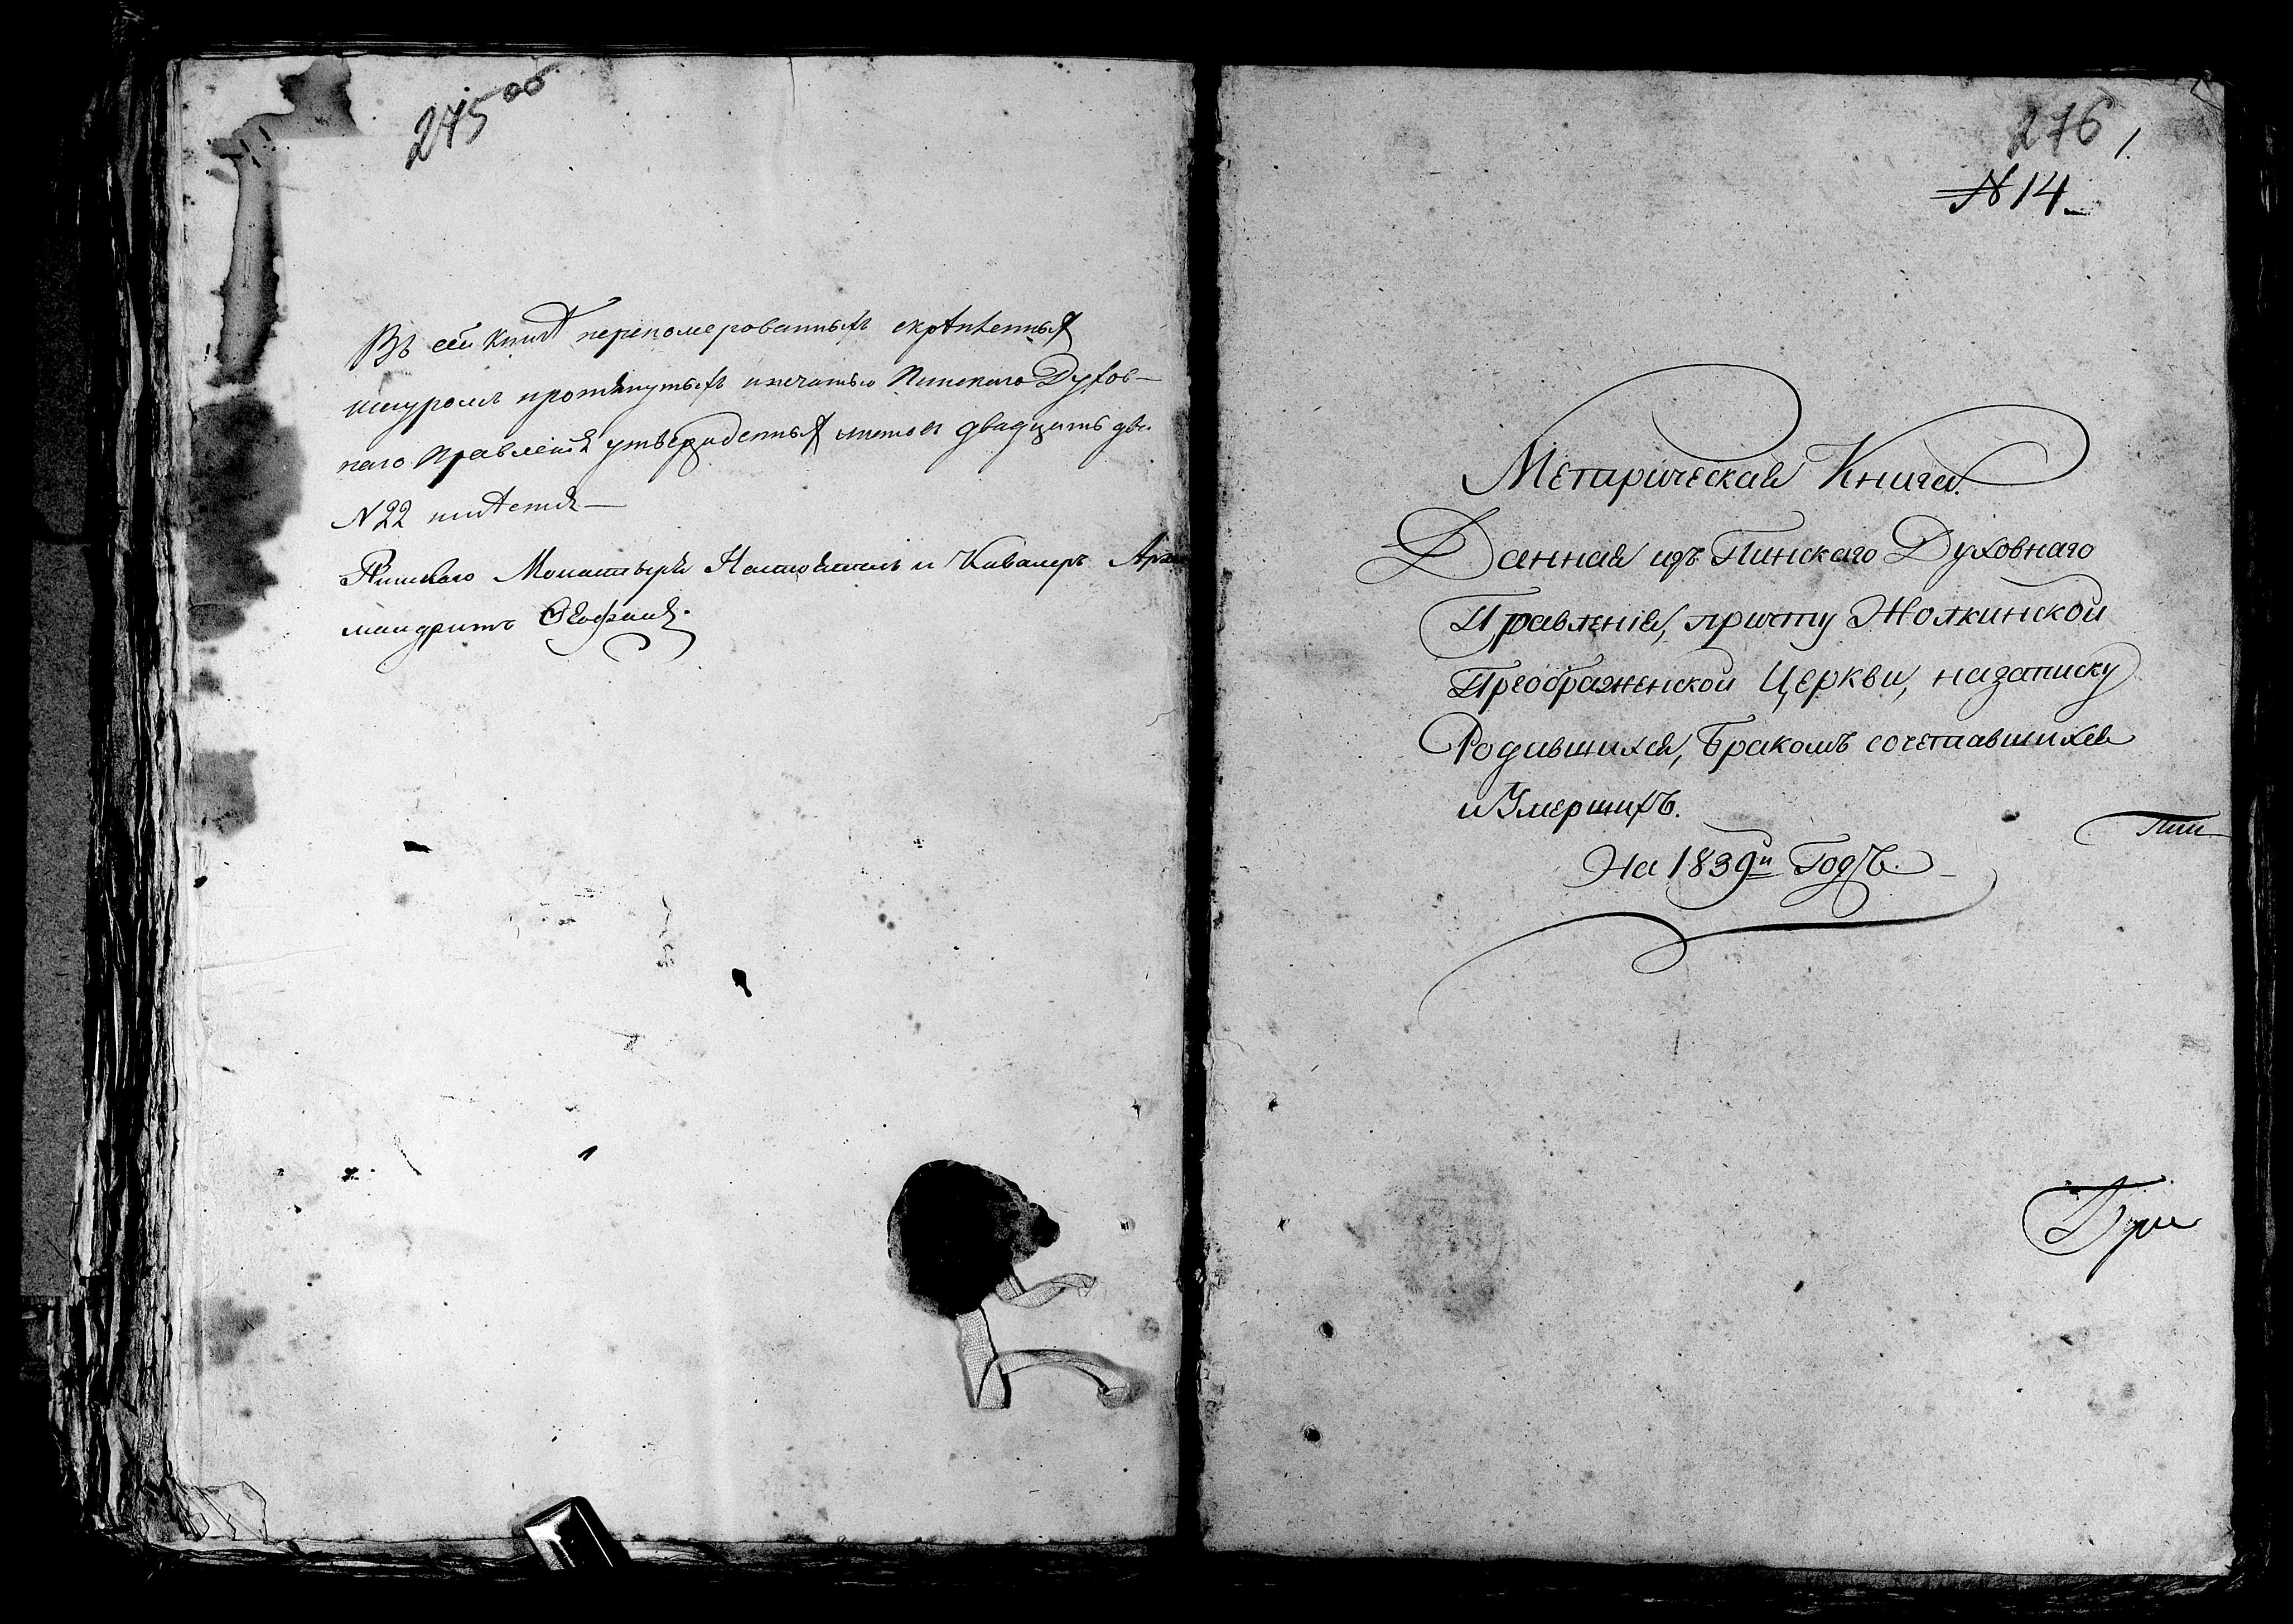 275 об
Въ сей книгѣ перенумерованныхъ скрѣпленныхъ
шнуромъ протянутыхъ и печатью Пинскаго Духов-
наго Правленія утвержденныхъ листовъ двадцать два
№ 22 имѣется—
Пинскаго Монастыря Настоятель и Кавалеръ Архи
мандритъ
276 1.
№ 14.
Метрическая Книга.
Данная изъ Пинскаго Духовнаго
Правленія, причту Жолкинской
Преображенской Церкви, на записку
Родившихся, Бракомъ сочетавшихся
и Умершихъ.
Пин
На 1839й Годъ.